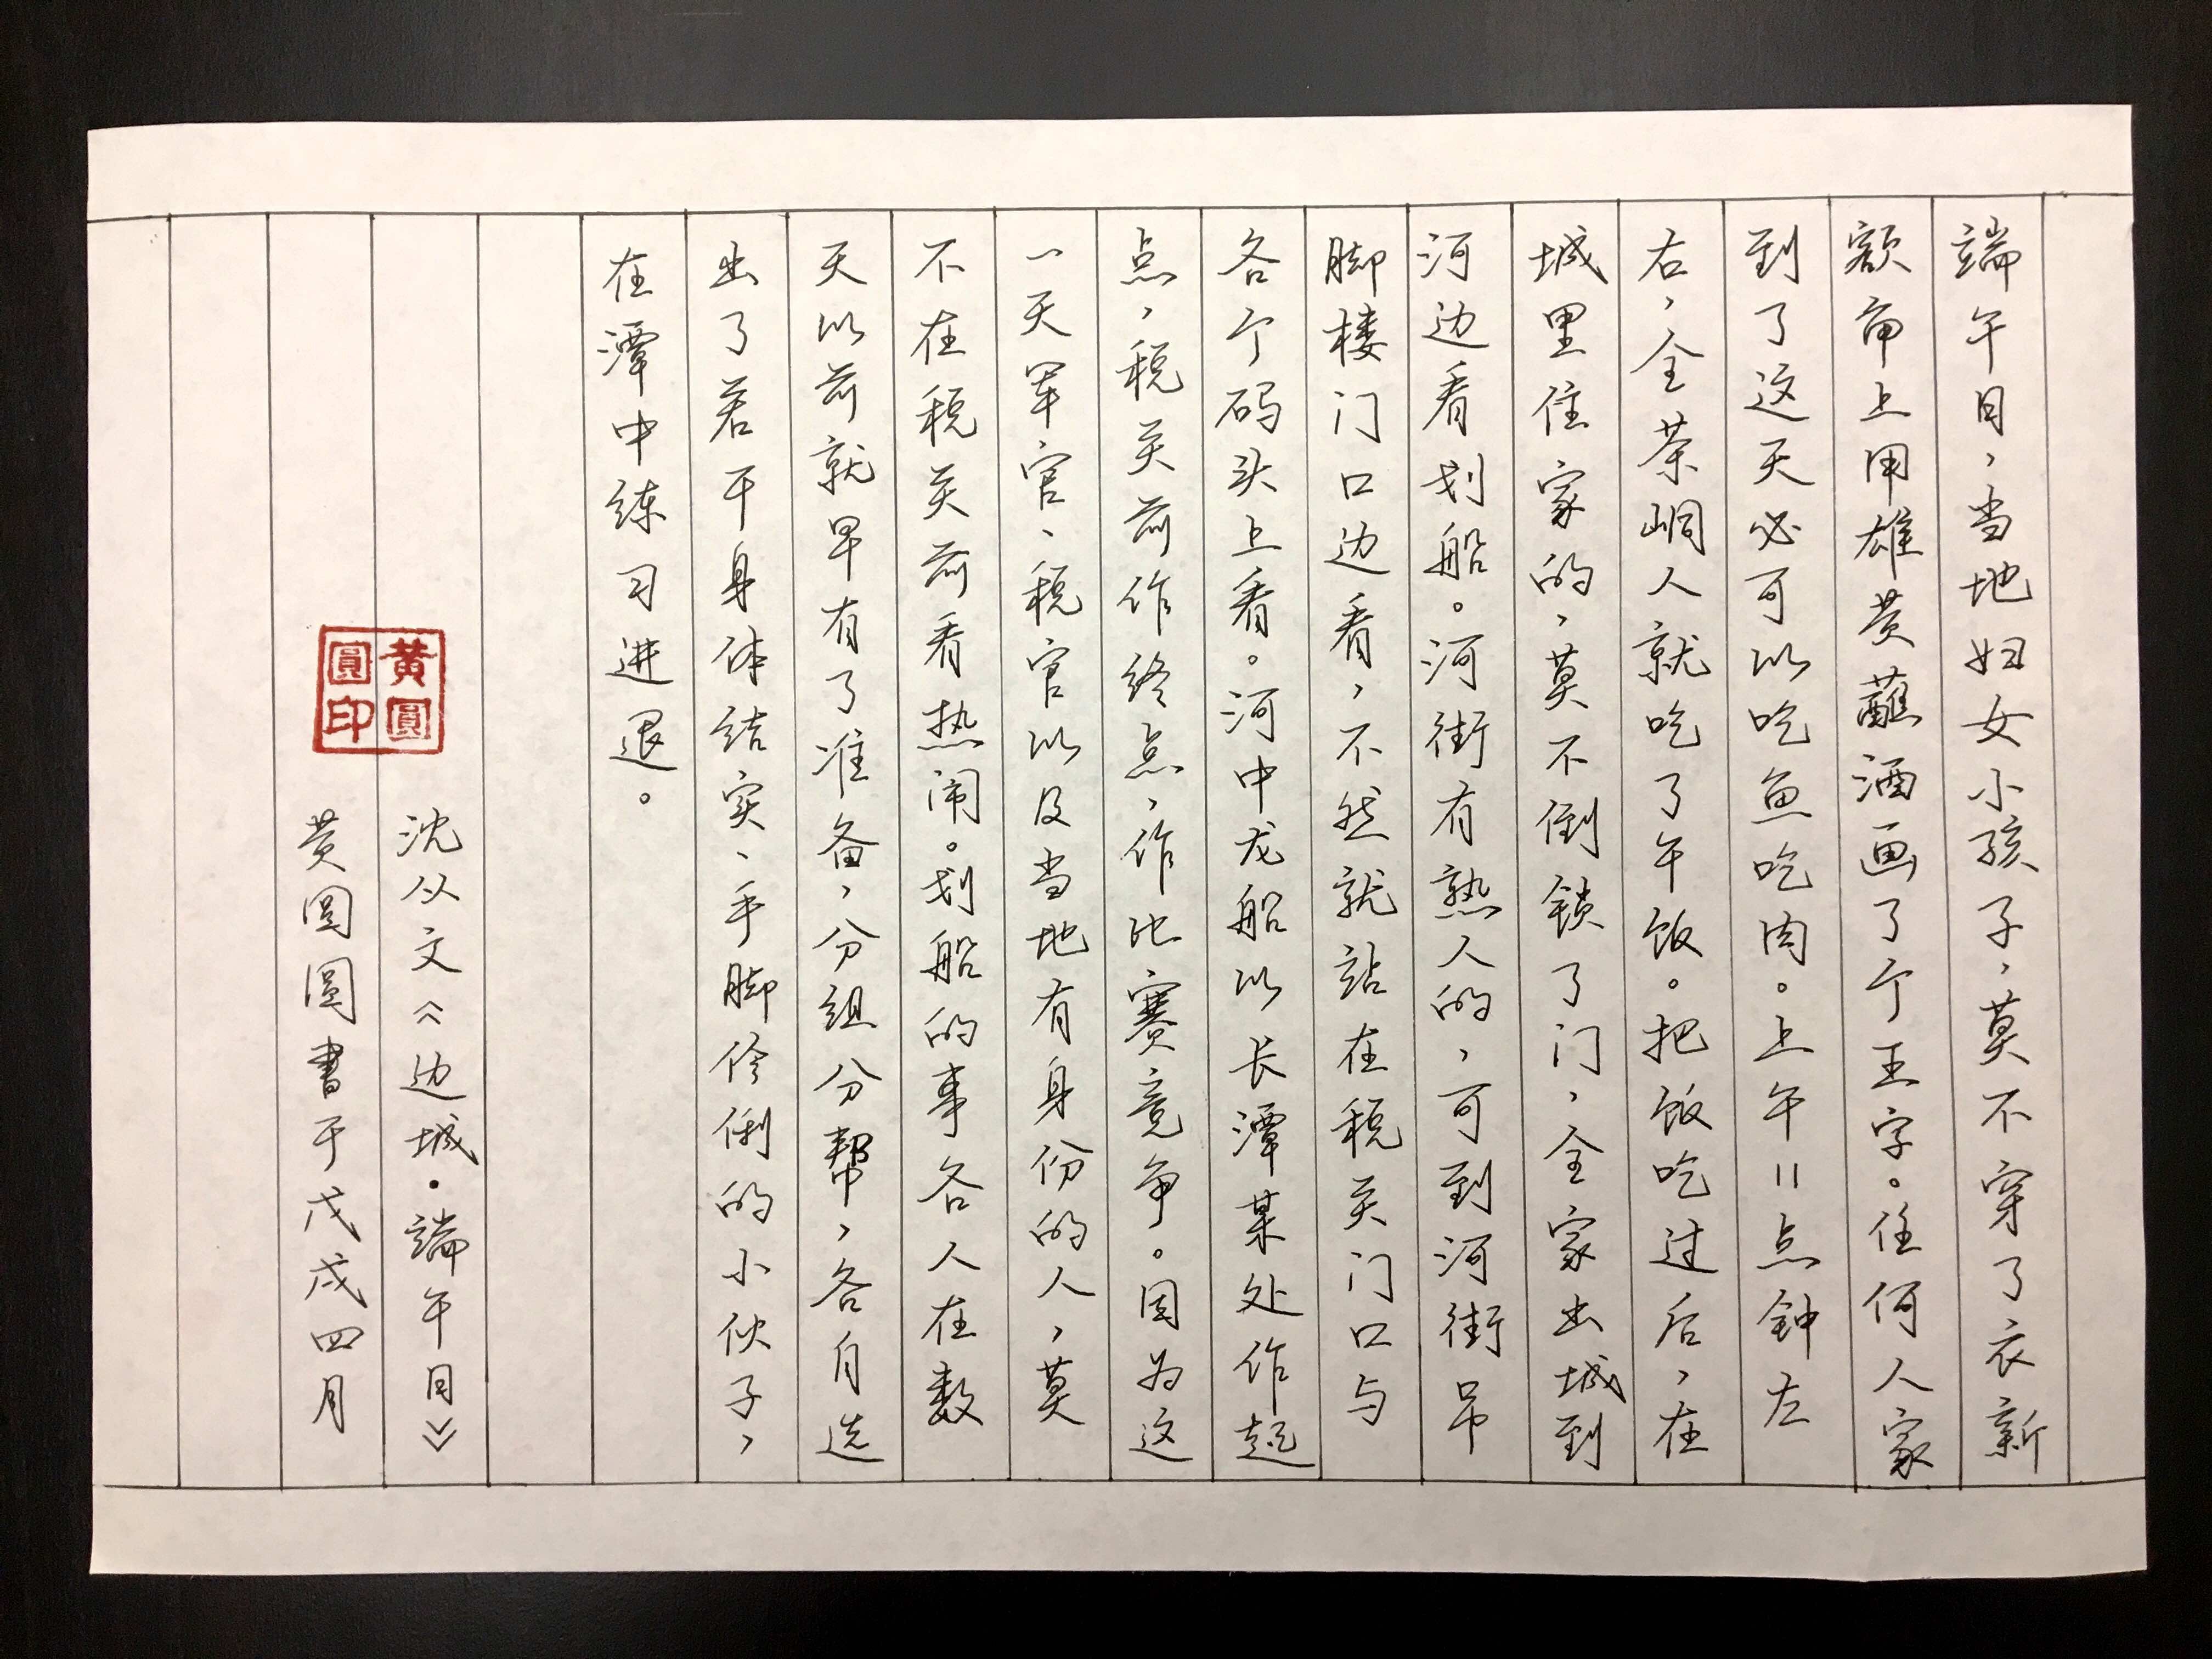 端午日，当地妇女小孩子，莫不穿了衣新
额角上用雄黄蘸酒画了个王字。任何人家
到了这天必可以吃鱼吃肉。上午11点钟左
右，全茶峒人就吃了午饭。把饭吃过后，在
城里住家的，莫不倒锁了门，全家出城到
河边看划船。河街有熟人的，可到河街吊
脚楼门口边看，不然就站在税关门口与
各个码头上看。河中龙船以长潭某处作起
点，税关前作终点，作比赛竞争。因为这
一天军官、税官以及当地有身份的人，莫
不在税关前看热闹。划船的事各人在数
天以前就早有了准备，分组分帮，各自选
出了若干身体结实、手脚伶俐的小伙子，
在潭中练习进退。
沈从文《边城·端午日》
黄圆圆書于戊戌四月
黄圓
圓印